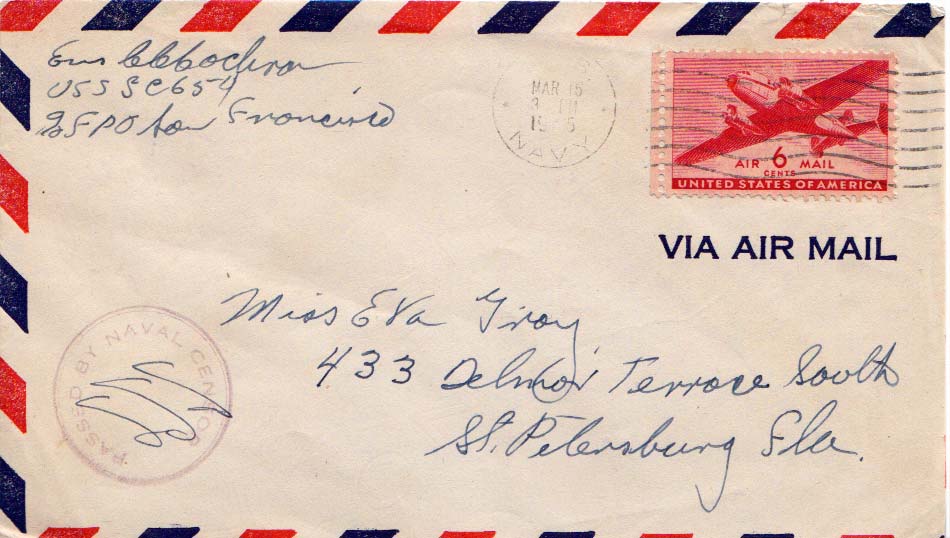 Ens CC Cochran
USS SC 654
℅ FPO San Francisco
MAR 15
NAVY
AIR 6 MAIL
CENTS
UNITED STATES OF AMERICA
VIA AIR MAIL
Miss Eva Gray
433 Delmar Terrace South
St. Petersburg Fla.
PASSED BY NAVAL CENSOR